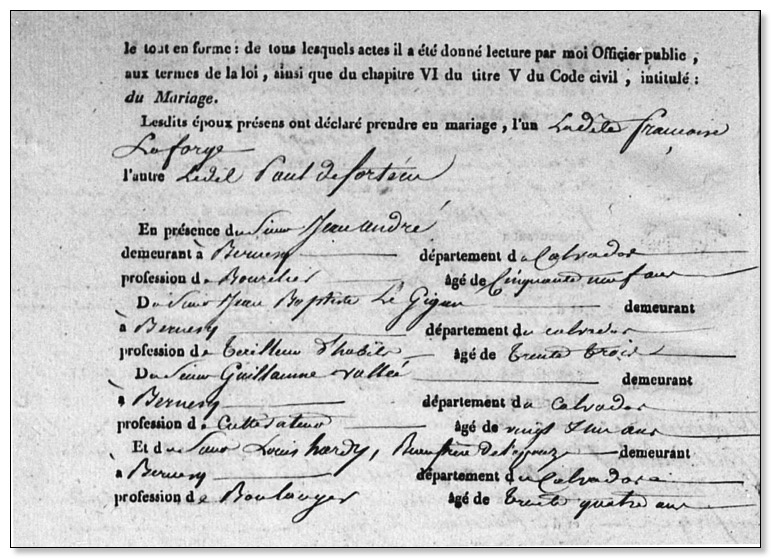 le tout en forme : de tous lesquels actes il a été donné lecture par moi Officier public,
aux termes de la loi, ainsi que du chapitre VI du titre V du Code civil, intitulé :
du Mariage.
Lesdits époux présens ont déclaré prendre en mariage, l'un Ladite francoise
Laforge
l'autre Ledit Paul
En présence du Sieur Jean andré
demeurant à département du Calvados
profession de Bourelier âgé de Cinquante neuf ans
Du Sieur Jean Baptiste Le Gigan demeurant
à département du calvados
profession de Tailleur d'habits âgé de trente trois
Du Sieur Guillaume vallée demeurant
à département du calvados
profession de Cultivateur âgé de vingt
Et du Sieur Louis hardy, demeurant
à département du Calvados
profession de Boulanger âgé de trente quatre ans